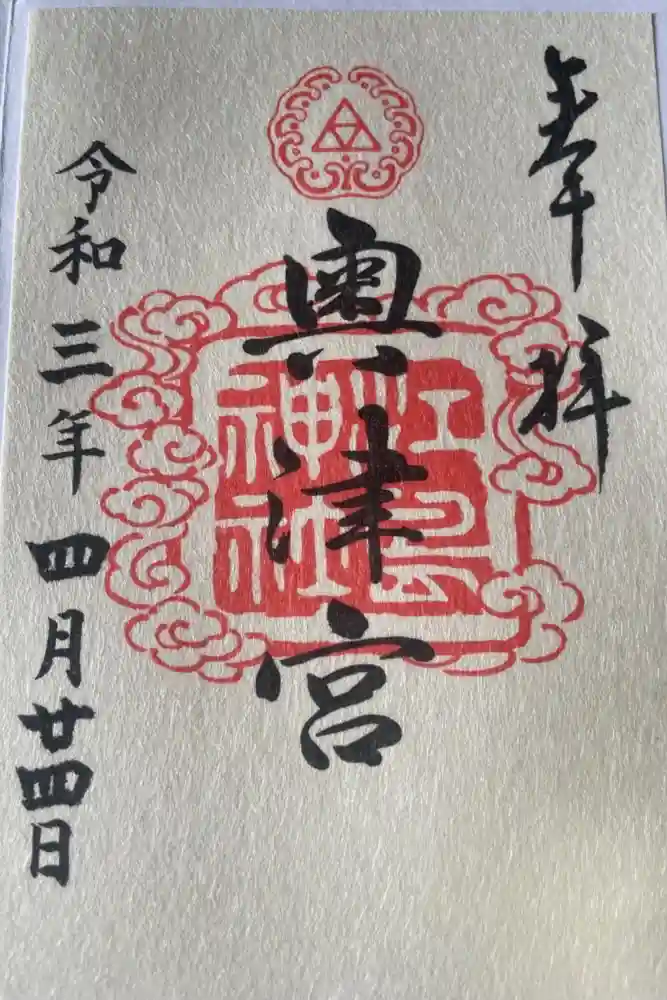 奉拝
奥津宮
江島神社
令和三年四月廿四日